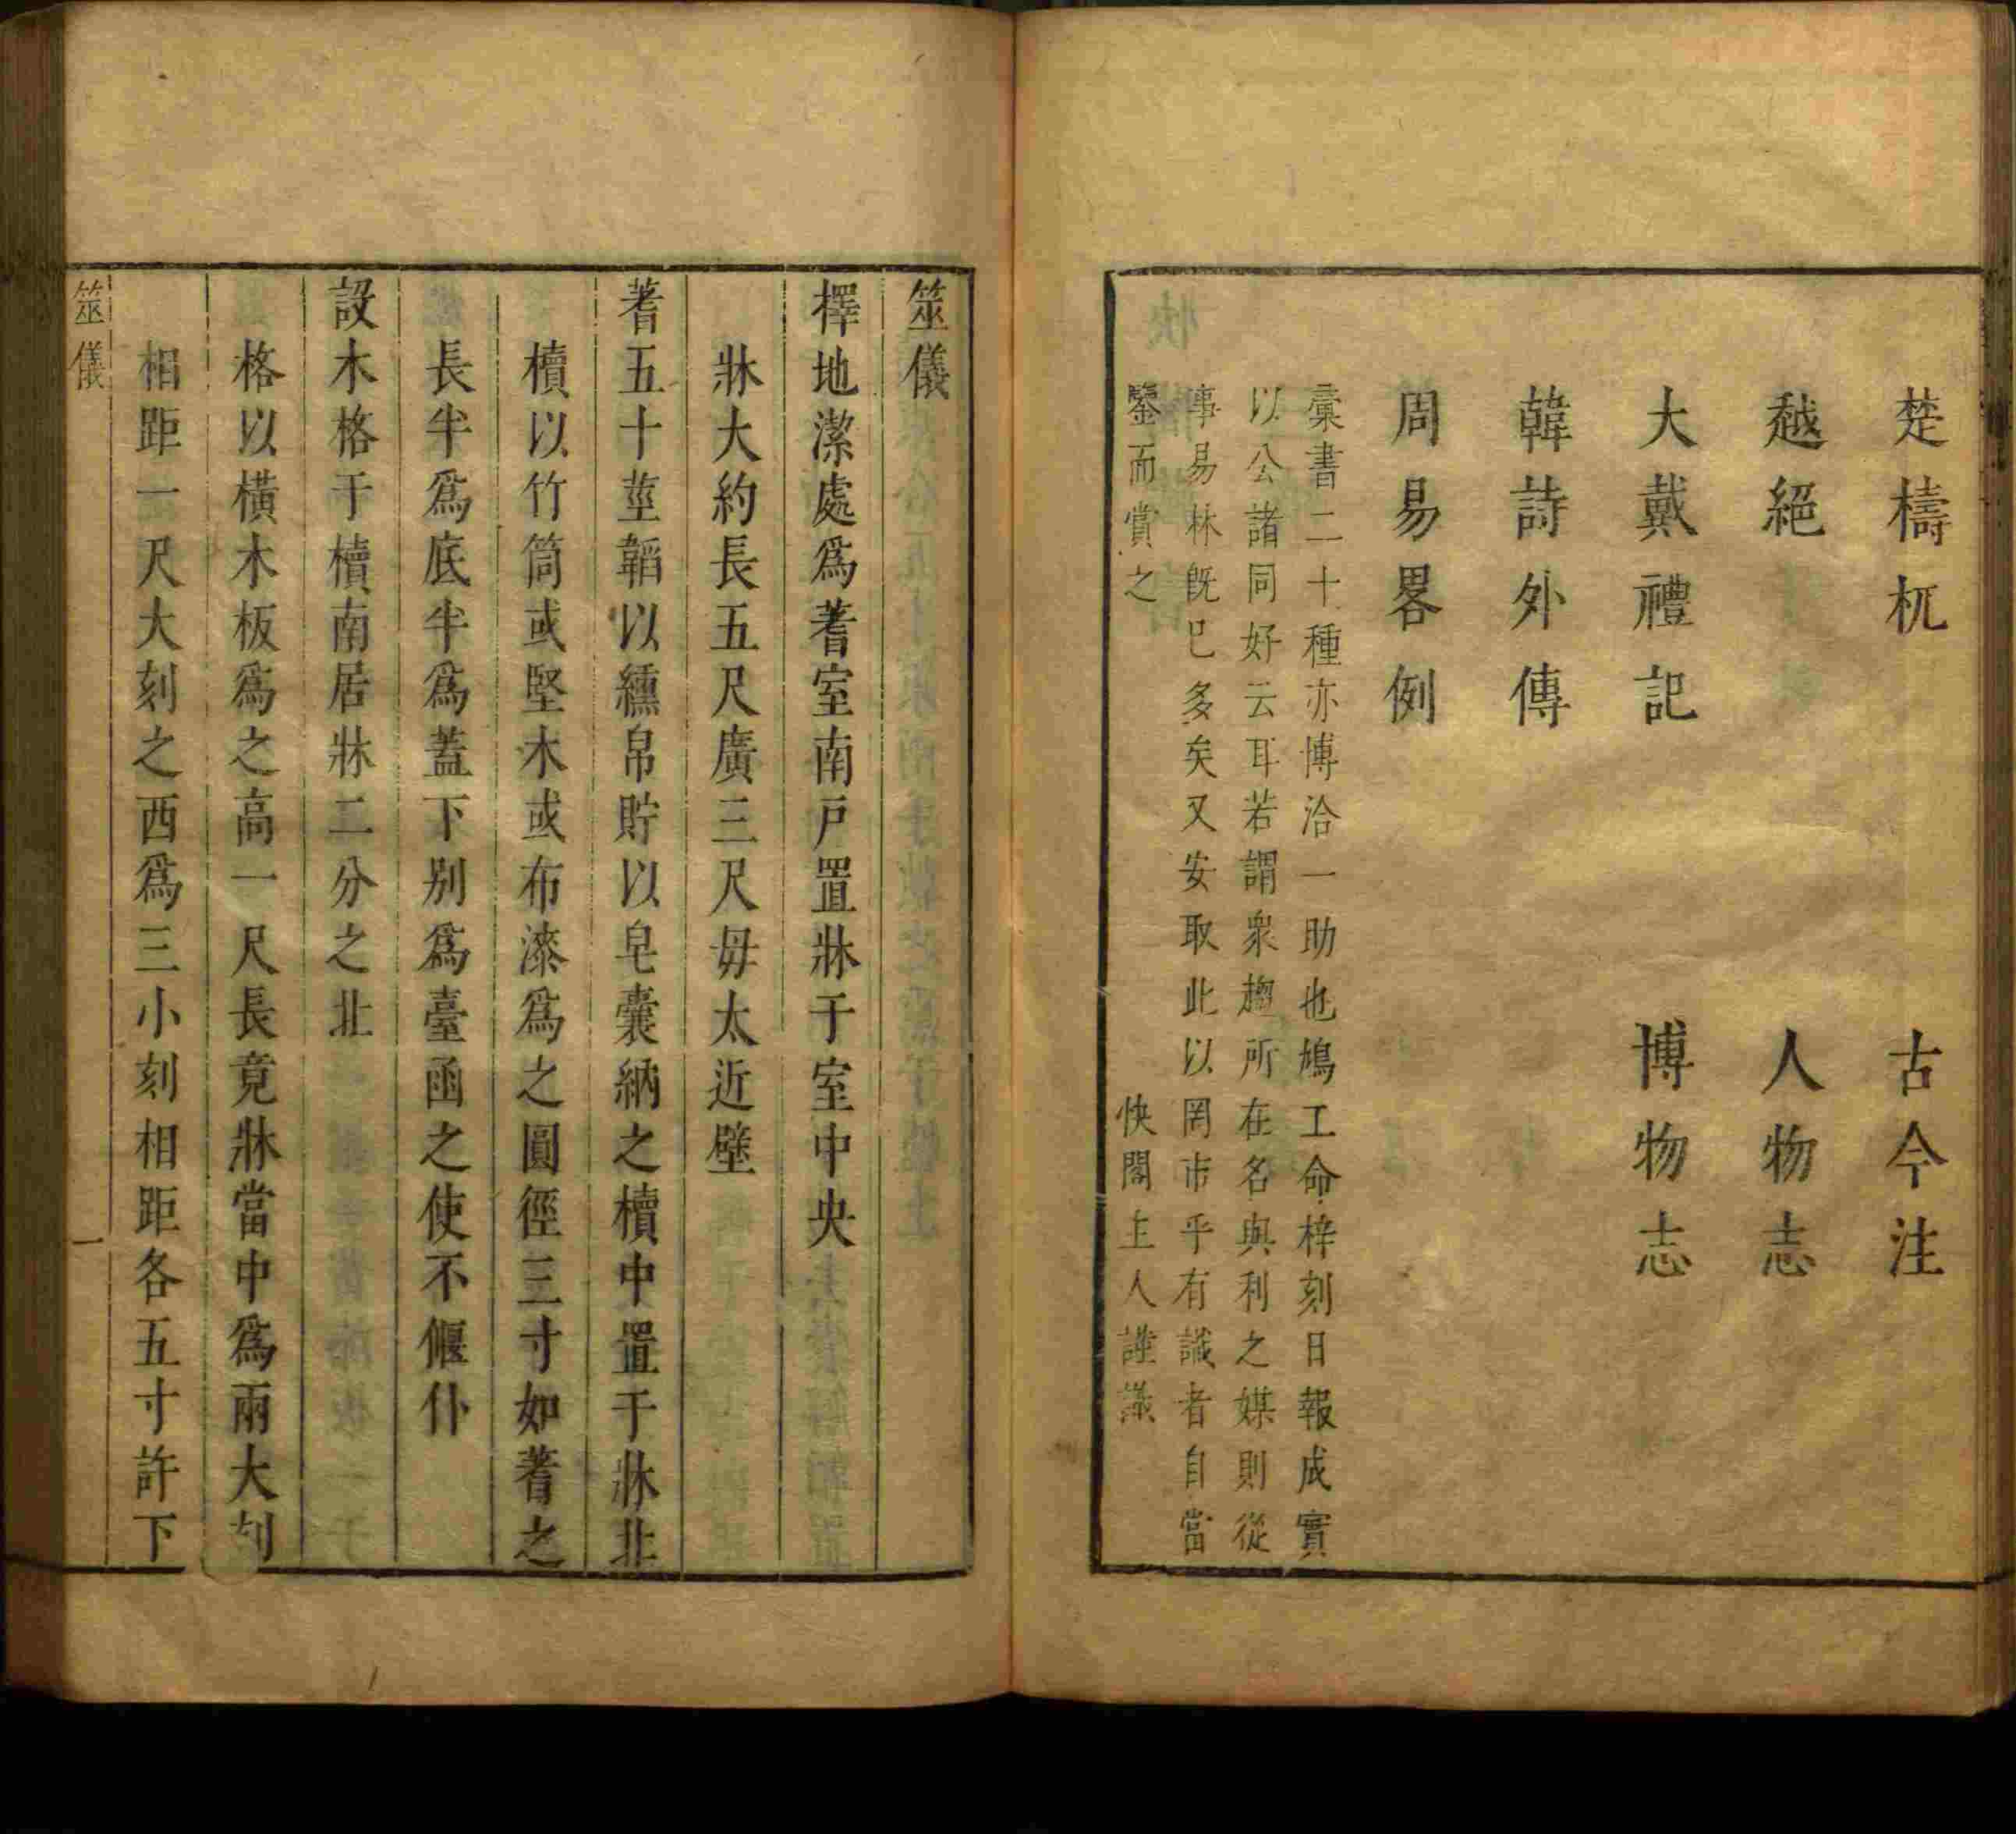 楚檮杌 古今注
越絕 人物志
大戴禮記 博物志
韓詩外傳
周易畧例
彙書二十種亦博洽一助也鳩工命梓刻日報成實
以公諸同好云耳若謂衆趨所在名與利之媒則從
事易林旣已多矣又安取此以罔市乎有識者自當
鑒而賞之 快閣主人謹識
筮儀
擇地潔處爲蓍室南戶置牀于室中央
牀大約長五尺廣三尺毋太近壁
蓍五十莖韜以纁帛貯以皂囊納之櫝中置于牀北
櫝以竹筒或堅木或布漆爲之圓徑三寸如蓍之
長半爲底半爲蓋下別爲臺函之使不偃仆
設木格于櫝南居牀二分之北
格以橫木板爲之高一尺長竟牀當中爲兩大刻
相距一尺大刻之西爲三小刻相距各五寸許下
筮儀 一